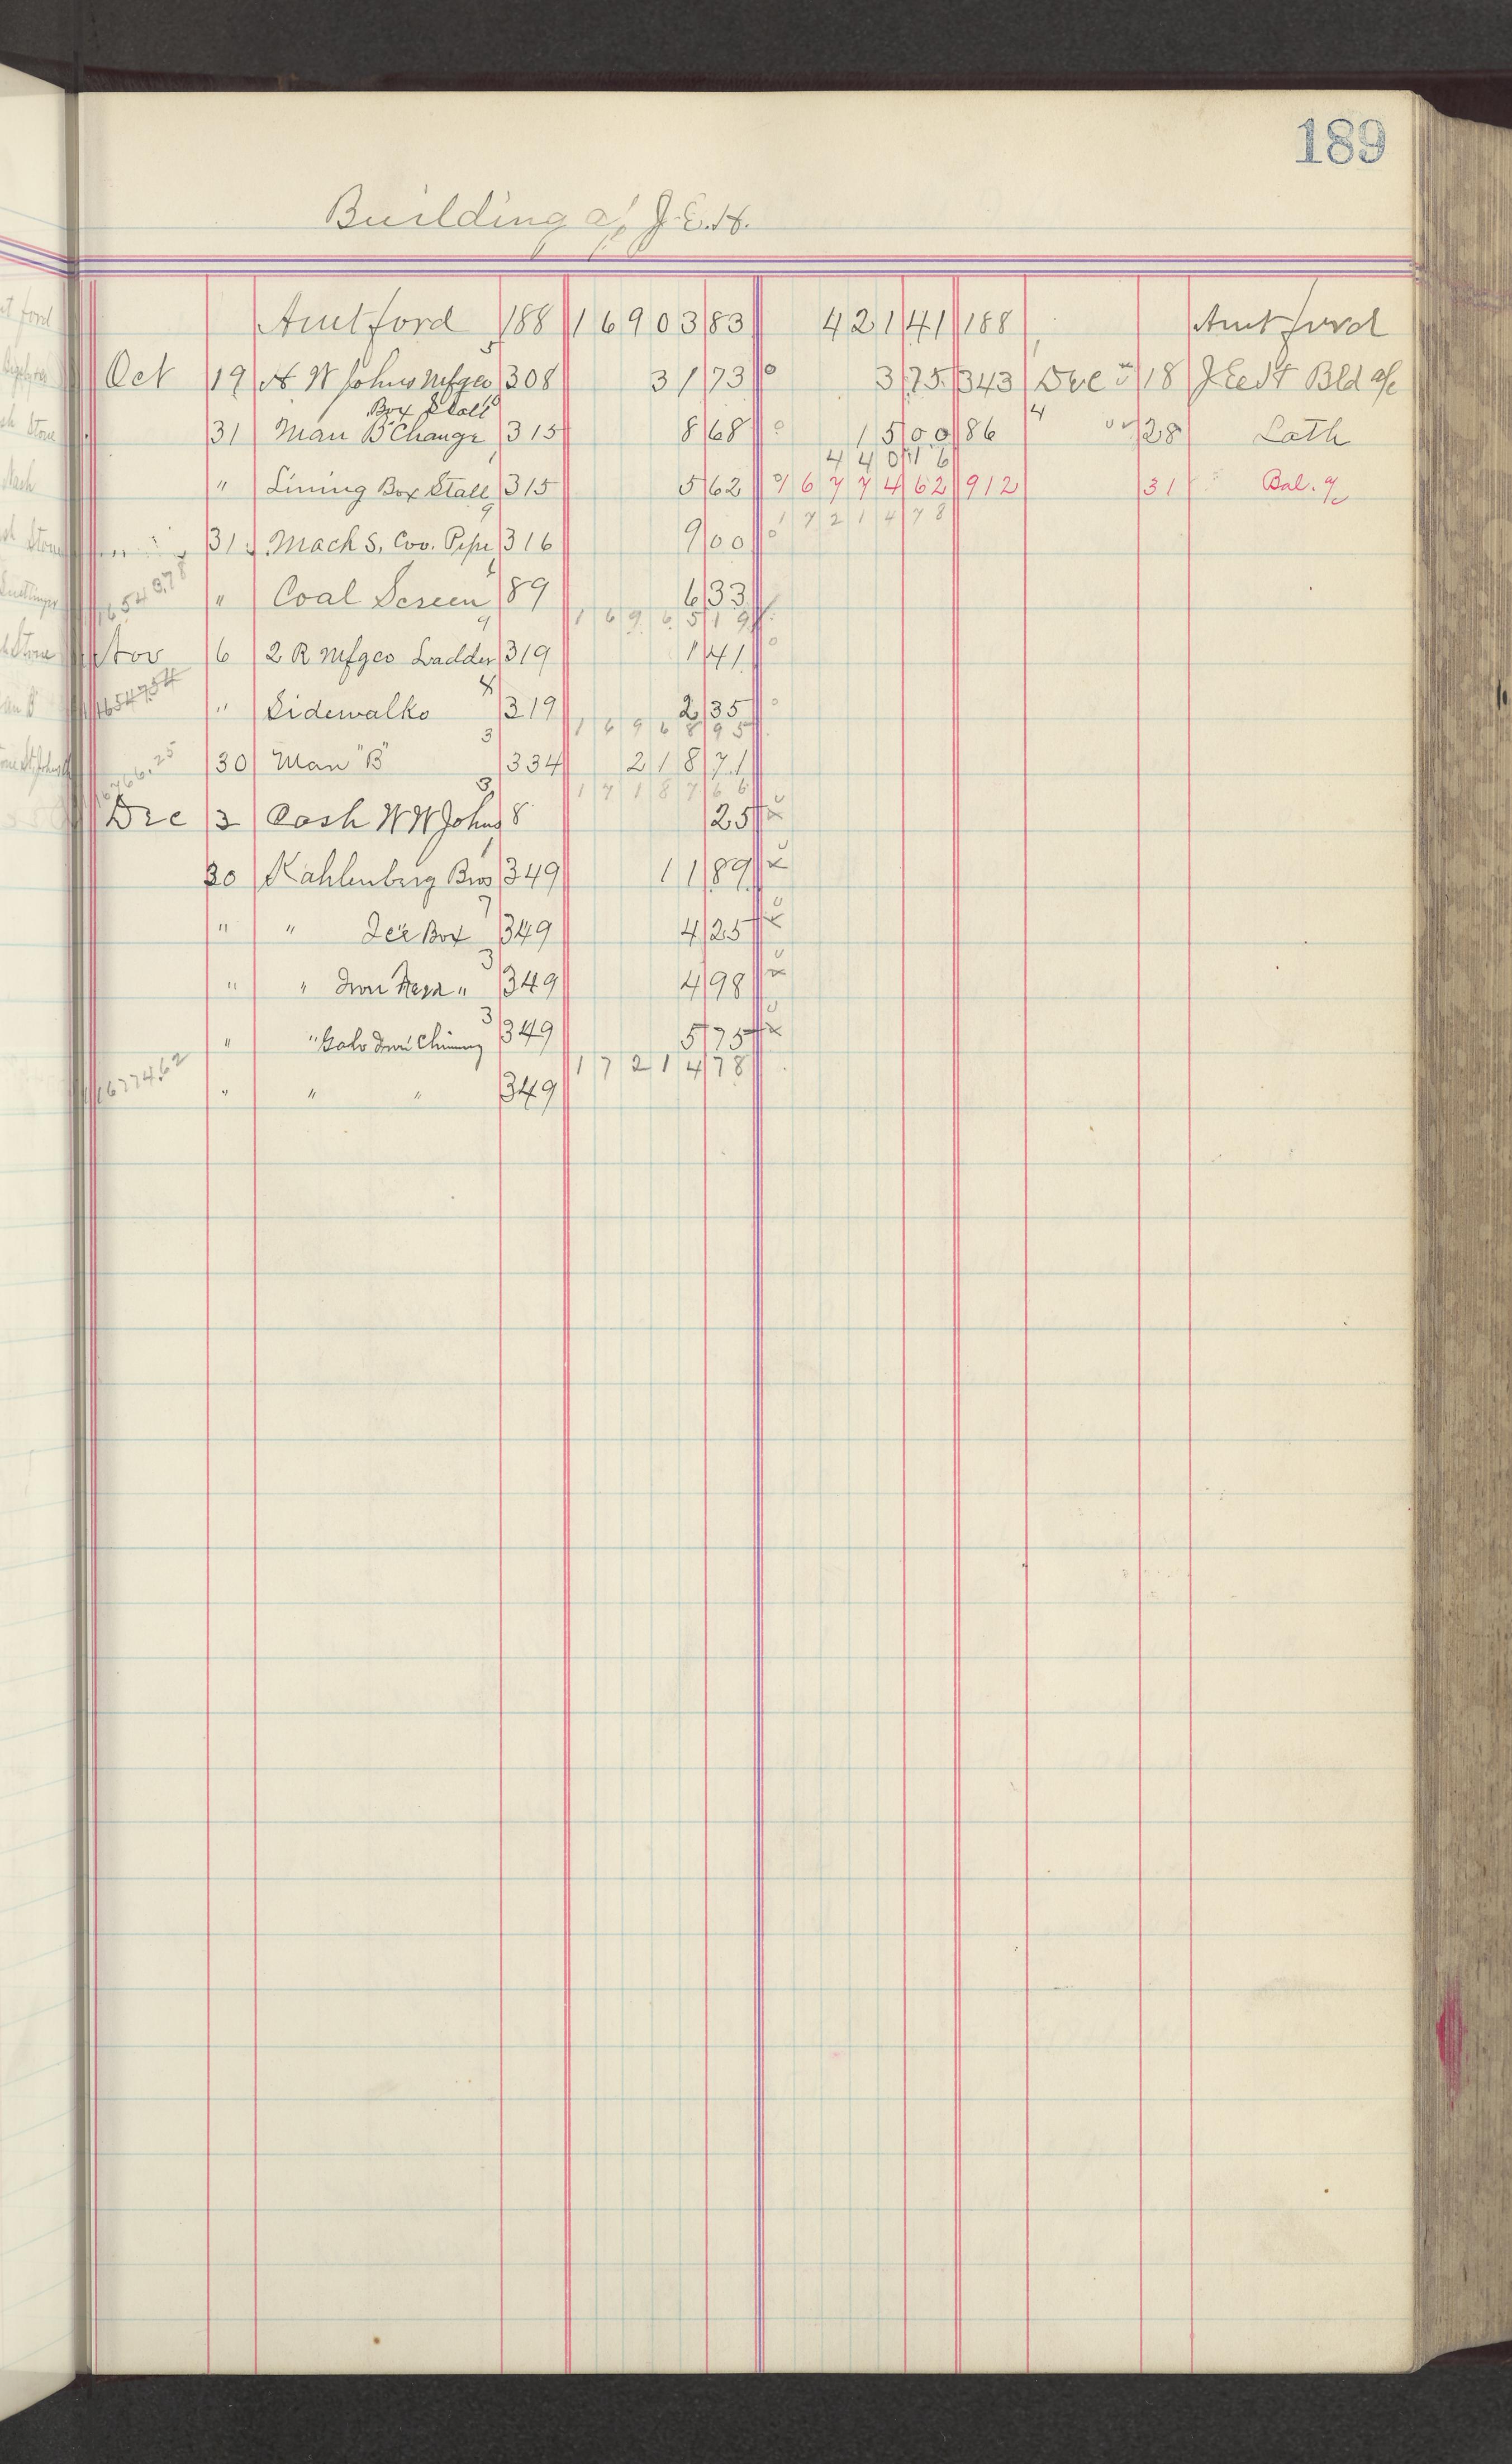 189
Building a/c J.E.H.
Amt ford 188 16903 83 421 41 188 Amt ford
Oct 19 H W Johns Mfg co 308 31 73 3 75 343 Dec 18 J E & H Bld a/c
Box Stall
31 Man B Change 315 8 68 15 00 86 28 Lath
440 16
" Lining Box Stall 315 5 62 16774 62 912 31 Bal. a/c
17214 78
31 Mach S, Cov. Pipe 316 9 00
16543.78 " Coal Screen 89 6 33
16965 19
Nov 6 2 R Mfg co Ladder 319 1 41
16547.54 " Sidewalks 319 2 35
16968 95
30 Man "B" 334 218 71
17187 66
Dec 3 Cash W W Johns 8 25
30 Kahlenberg Bros 349 11 89
" " Ice Box 349 4 25
" " Iron " 349 4 98
" " Galv Iron Chimney 349 5 75
17214 78
16774.62 " " " 349